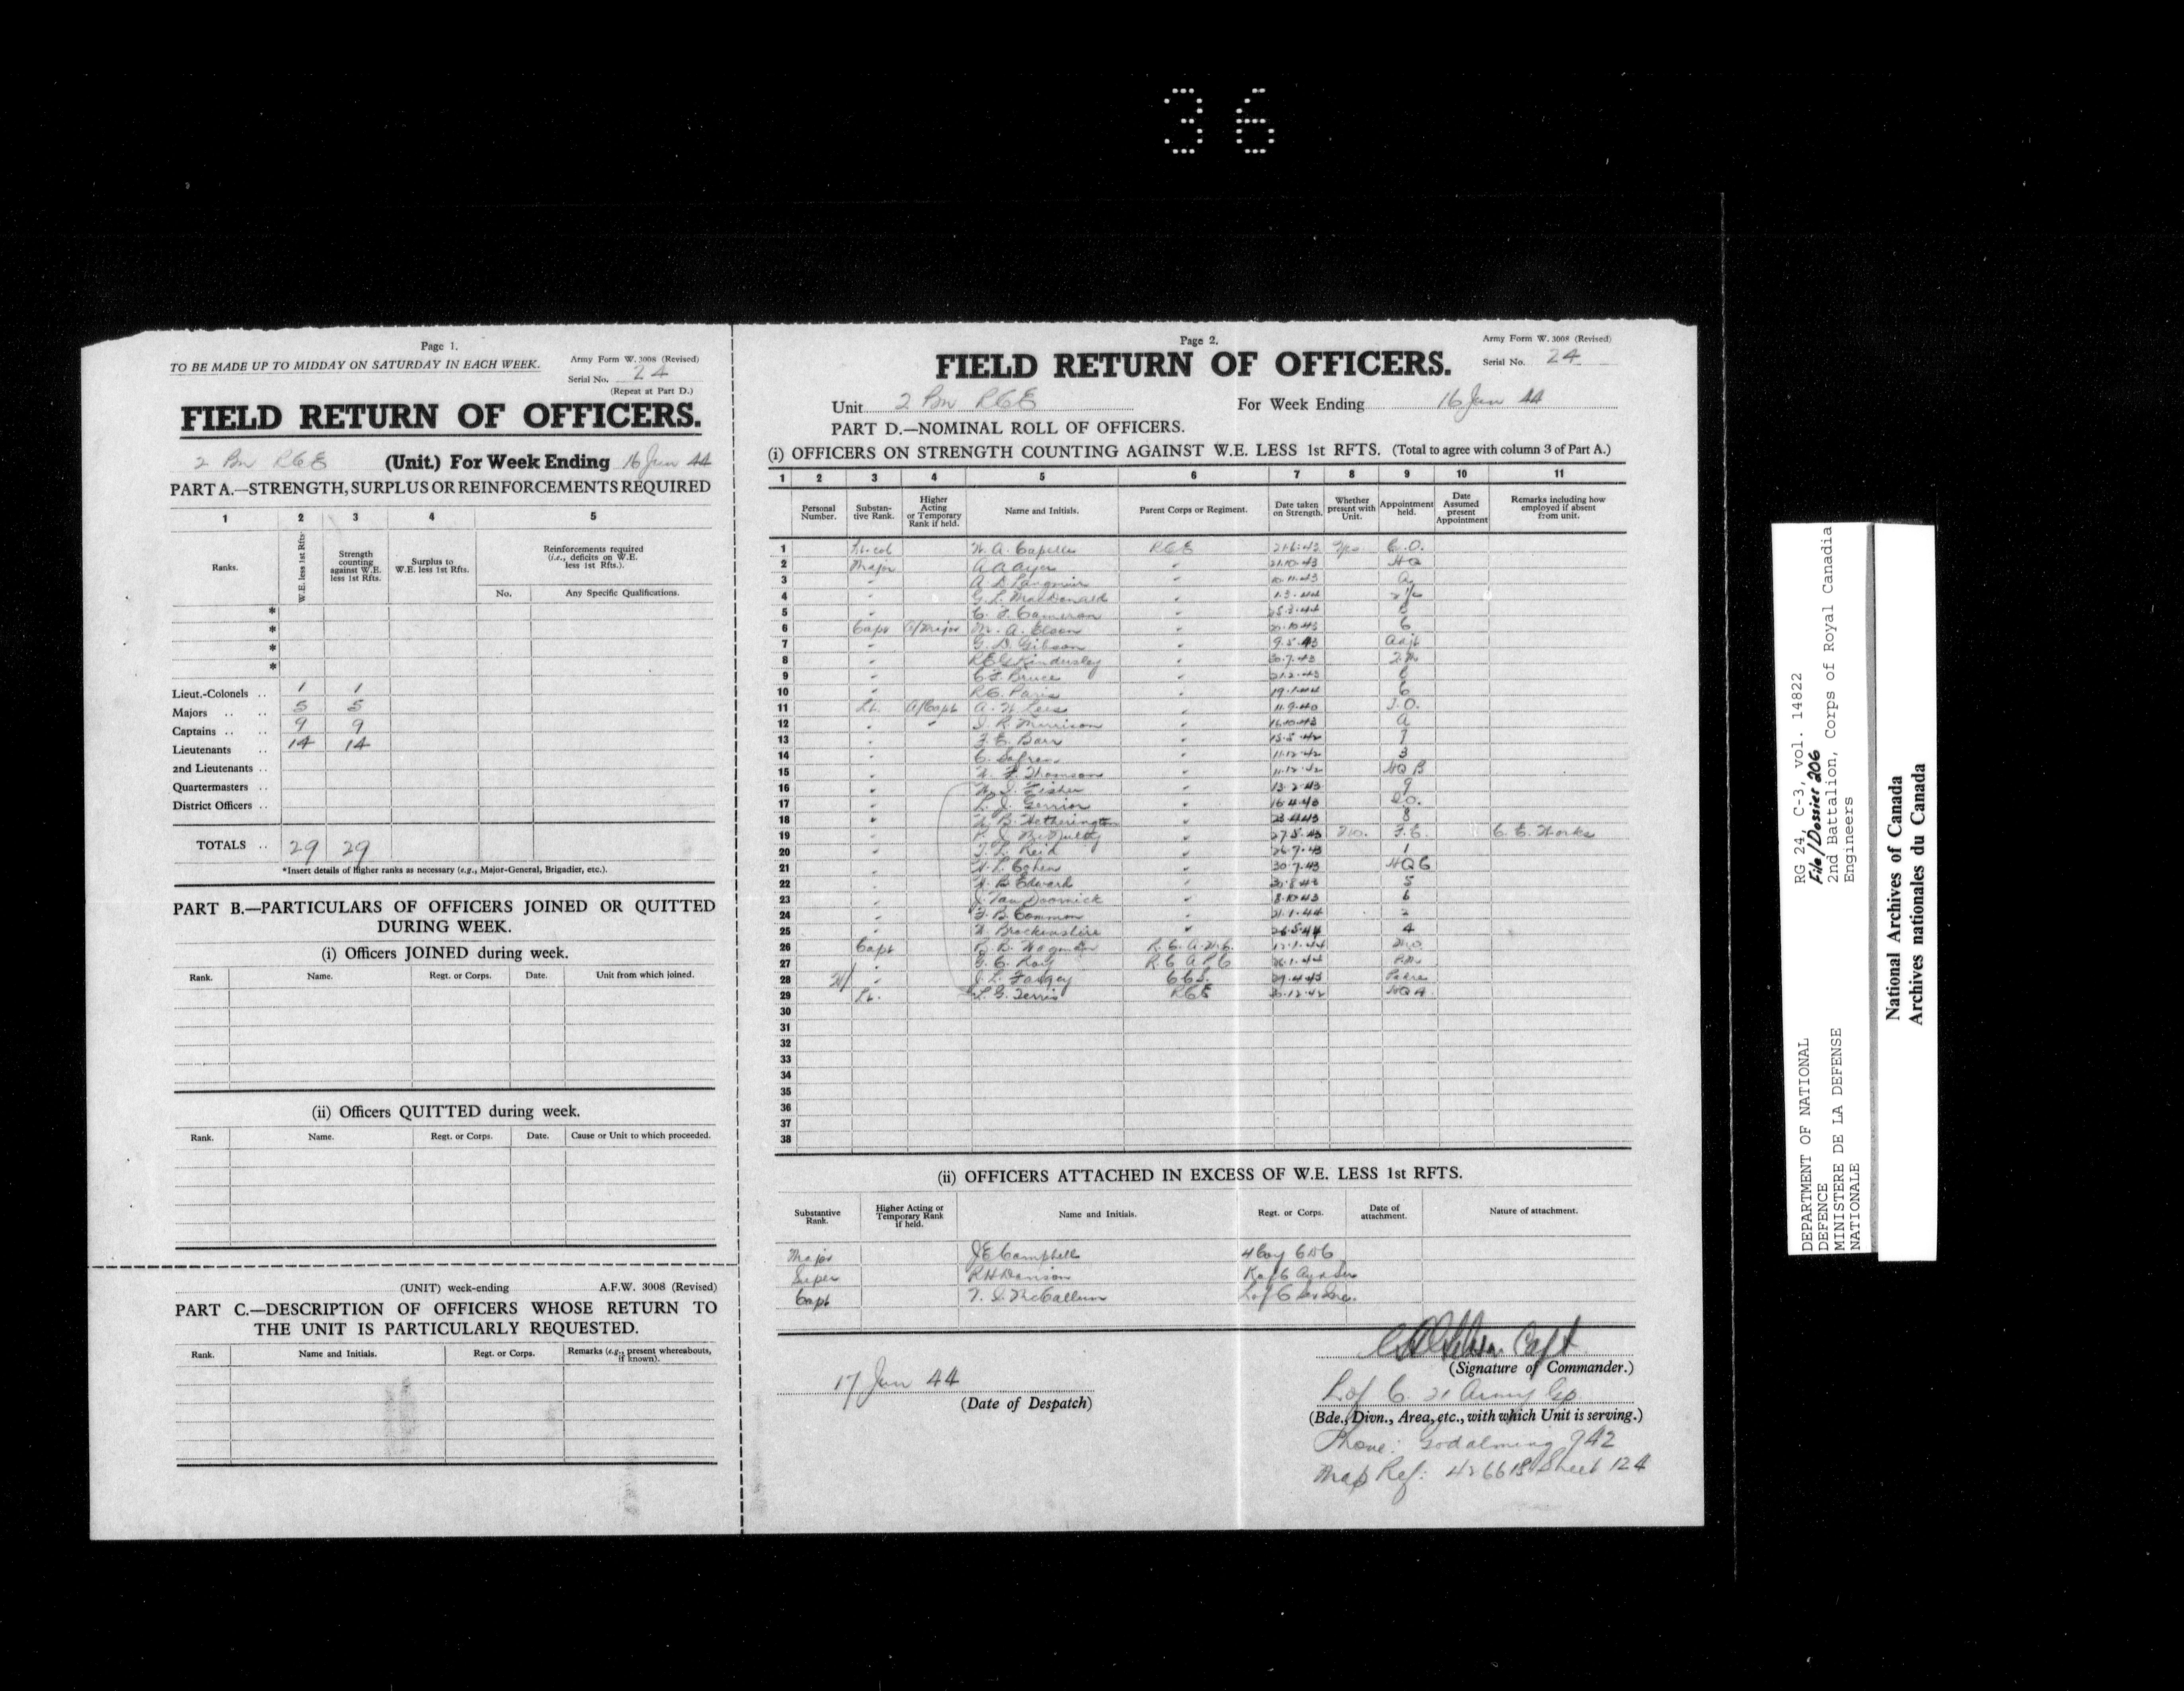 36
Page 1.
TO BE MADE UP TO MIDDAY ON SATURDAY IN EACH WEEK.
Army Form W. 3008 (Revised)
Serial No. 24
(Repeat at Part D.)
FIELD RETURN OF OFFICERS.
2 Bn RCE (Unit.) For Week Ending 16 Jun 44
PART A.—STRENGTH, SURPLUS OR REINFORCEMENTS REQUIRED
1 2 3 4 5
Ranks. W.E. less 1st Rfts. Strength counting against W.E. less 1st Rfts. Surplus to W.E. less 1st Rfts. Reinforcements required (i.e., deficits on W.E. less 1st Rfts.).
No. Any Specific Qualifications.
*
*
*
*
Lieut.-Colonels .. 1 1
Majors .. .. 5 5
Captains .. .. 9 9
Lieutenants .. 14 14
2nd Lieutenants ..
Quartermasters ..
District Officers ..
TOTALS .. 29 29
*Insert details of higher ranks as necessary (e.g., Major-General, Brigadier, etc.).
PART B.—PARTICULARS OF OFFICERS JOINED OR QUITTED
DURING WEEK.
(i) Officers JOINED during week.
Rank. Name. Regt. or Corps. Date. Unit from which joined.
(ii) Officers QUITTED during week.
Rank. Name. Regt. or Corps. Date. Cause or Unit to which proceeded.
(UNIT) week-ending A.F.W. 3008 (Revised)
PART C.—DESCRIPTION OF OFFICERS WHOSE RETURN TO
THE UNIT IS PARTICULARLY REQUESTED.
Rank. Name and Initials. Regt. or Corps. Remarks (e.g., present whereabouts, if known).
Page 2.
Army Form W. 3008 (Revised)
Serial No. 24
FIELD RETURN OF OFFICERS.
Unit 2 Bn RCE For Week Ending 16 Jun 44
PART D.—NOMINAL ROLL OF OFFICERS.
(i) OFFICERS ON STRENGTH COUNTING AGAINST W.E. LESS 1st RFTS. (Total to agree with column 3 of Part A.)
1 2 3 4 5 6 7 8 9 10 11
Personal Number. Substantive Rank. Higher Acting or Temporary Rank if held. Name and Initials. Parent Corps or Regiment. Date taken on Strength. Whether present with Unit. Appointment held. Date Assumed present Appointment Remarks including how employed if absent from unit.
1 Lt-col W. A. Capelle RCE 21-6-43 Yes C.O.
2 Major A A Ayer " 21-10-43 HQ
3 " A. D. Langmuir " 10-11-43
4 " G. L. MacDonald " 1-3-44 2 i/c
5 " C. F. Cameron " 25-3-44
6 Capt A/Major A. Elson " 10-43 C
7 " G. D. Gibson " 9-5-43 Adjt
8 " R E G Kindersley " 30-7-43
9 " Bruce " 21-2-43
10 " R. C. Paris " 19-1-44
11 Lt. A/Capt A. W. Lees " 11-9-40
12 " " J. R. Morrison " 16-10-43 A
13 " F. E. Barr " 15-5-42 7
14 " C. Safran " 11-12-42 3
15 " W. F. Thomson " 11-12-42 HQ B
16 " Fisher " 13-2-43 9
17 " L. J. Gerrior " 16-4-40
18 " W. B. Hetherington " 23-4-43 8
19 " P. J. McNulty " 27-5-43 No. F.E. C. E. Works
20 " T. L. Reid " 26-7-43 1
21 " H. L. Cohen " 30-7-43 HQ C
22 " W. B. Edwards " 30-8-43 5
23 " J. Van Doornick " 8-10-43 6
24 " F. B. Common " 21-1-44 2
25 " W. Brockenshire " 26-5-44 4
26 Capt R. C. A. M. C. 12-1-44 M.O
27 " G. C. Roy R. C A P C 26-1-44 P.M.
28 H/ " J. L. Forgey C C S. 29-4-43 Padre
29 Lt. L. G. Ferris RCE 30-12-42 HQ A
30
31
32
33
34
35
36
37
38
(ii) OFFICERS ATTACHED IN EXCESS OF W.E. LESS 1st RFTS.
Substantive Rank. Higher Acting or Temporary Rank if held. Name and Initials. Regt. or Corps. Date of attachment. Nature of attachment.
Major J E Campbell 4 Coy CDC
Super R H Davison K of C
Capt McCallum
17 Jun 44
(Date of Despatch)
Capt
(Signature of Commander.)
L of C. 21 Army Gp.
(Bde., Divn., Area, etc., with which Unit is serving.)
Phone: Godalming 942
Map Ref: 426618 Sheet 124
RG 24, C-3, vol. 14822
File/Dossier 206
2nd Battalion, Corps of Royal Canadia
Engineers
DEPARTMENT OF NATIONAL
DEFENCE
MINISTERE DE LA DEFENSE
NATIONALE
National Archives of Canada
Archives nationales du Canada